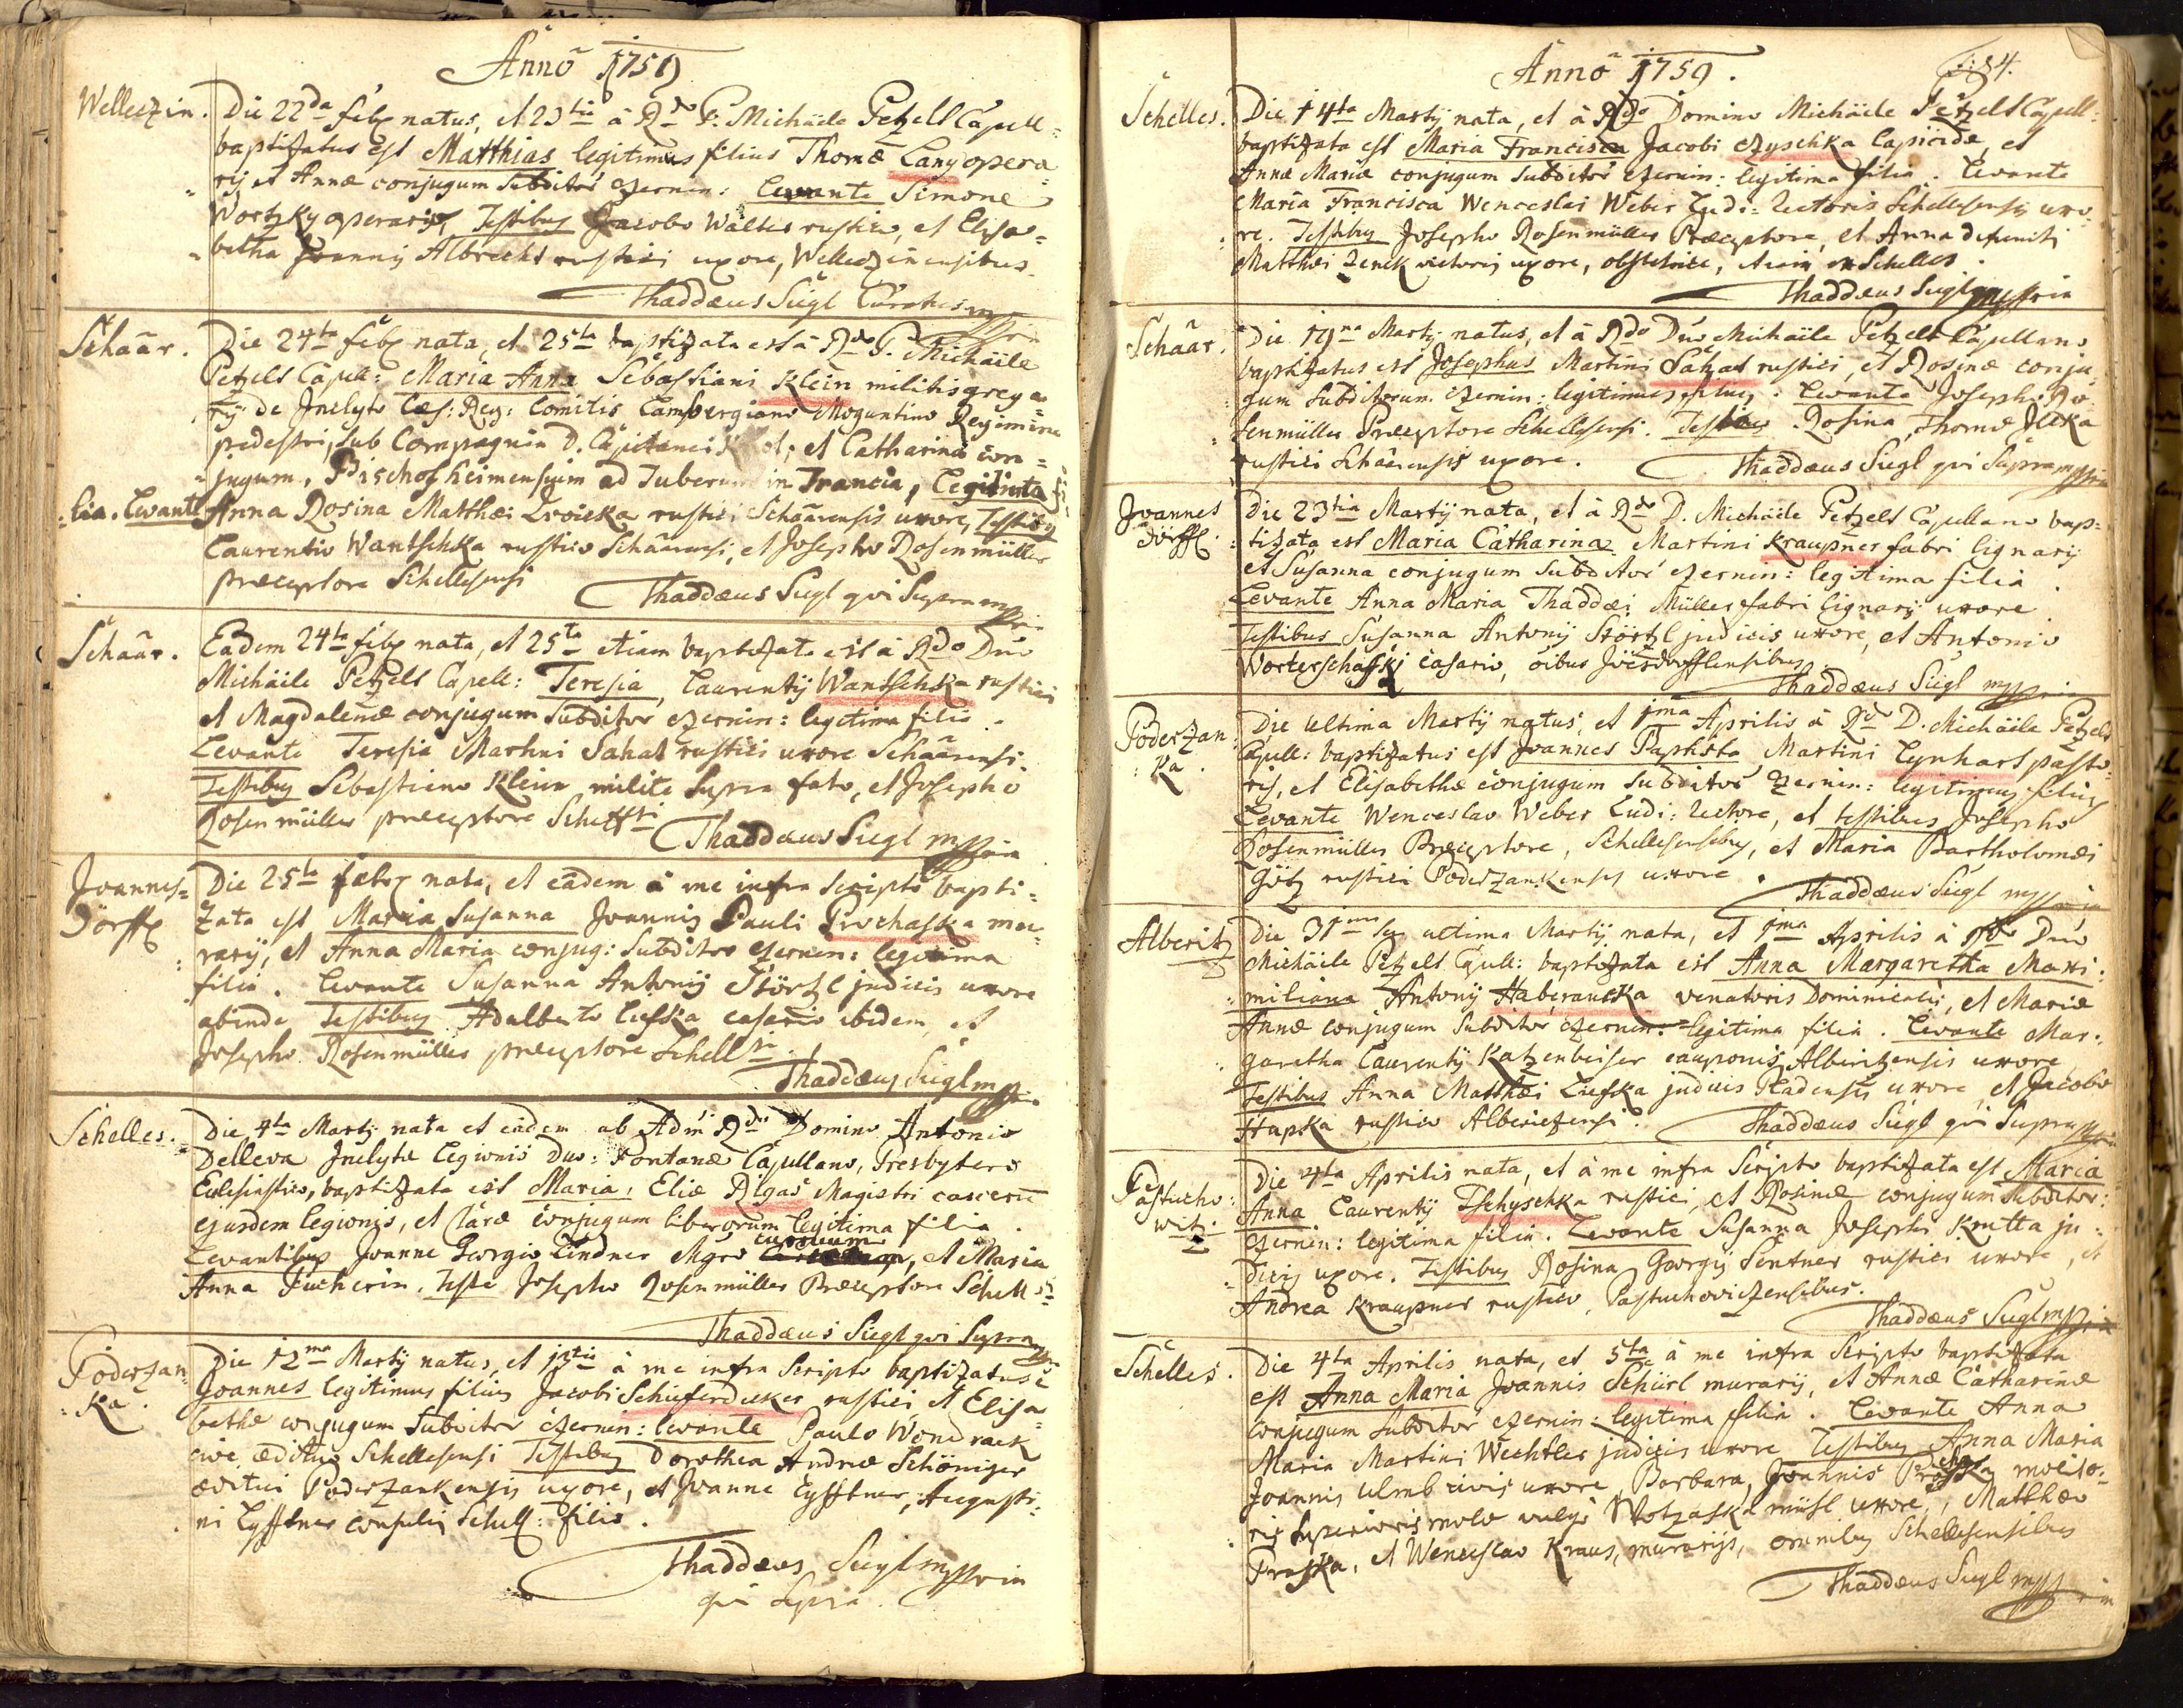 Anno 1759
Welleszin.
Die 22da febr natus, et 23tia à Rdo P: Michäele Petzelt Capell:
baptizatus est Matthias legitimus filius Thomæ Lany opera=
rij et Annæ conjugum Subditor czernin: Levante Simone
Wortzky operario, Testibus Jacobo Walter rustico, et Elisa=
betha Joannis Albrecht rustici uxore, Welleszinensibus.
Thaddæus Siegl Curatus mppria
Schaar.
Die 24ta febr nata, et 25ta baptizata est à Rdo P. Michäile
Petzelt Capell: Maria Anna Sebastiani Klein militis grega=
rij de Inclyto Cæs: Reg: Comitis Lambergiano Moguntino Regimine
pedestri, sub Compagnia D. Capitanei et Catharina con=
jugum, Bischofheimensium ad Tuberum in Francia, Legitima fi=
lia. Levante Anna Rosina Matthæi Lwicka rustici Schaarensis uxore, Testibus
Laurentio Wantschka rustico Schaarensi, et Josepho Rosenmüller
præceptore Schellesensi
Thaddæus Siegl qvi Supra mppria
Schaar.
Eadem 24ta febr nata, et 25ta etiam baptizata est à Rdo Dno
Michäile Petzelt Capell: Teresia, Laurentij Wantschka rustici
et Magdalenæ conjugum Subditor czernin: legitima filia.
Levante Teresia Martini Sahat rustici uxore Schaarensi.
Testibus Sebastiano Klein milite supra fato, et Josepho
Rosenmüller præceptore Schellsi
Thaddæus Siegl mppria
Joannes=
Dörffl
Die 25ta febr nata, et eadem à me infra scripto bapti=
zata est Maria Susanna Joannis Pauli Prochaska mu=
rarij, et Anna Maria conjug: Subditor czernin: legitima
filia. Levante Susanna Antonij Störtzl judicis uxore
abinde Testibus Adalberto Liefka casario ibidem, et
Josepho Rosenmüller præceptore Schellsi
Thaddæus Siegl mppria
Schelles.
Die 4ta Martij nata et eadem ab Adm Rdo Domino Antonio
Delleva Inclytæ Legionis Duo: Fontanæ Capellano, Presbytero
Eclesiastico, baptizata est Maria, Eliæ Rigas Magistri carcerũ
ejusdem legionis, et Claræ conjugum liberorum legitima filia.
Levantibus Joanne Georgio Lindner Mgro curorum, et Maria
Anna Fucherin. Teste Josepho Rosenmüller Præceptore Schellsi
Thaddæus Siegl qvi Supra mppria
Poderzan=
ka.
Die 12ma Martij natus, et 13tia à me infra scripto baptizatus ẽ
Joannes legitimus filius Jacobi Schieferdeker rustici et Elisa=
bethæ conjugum Subditor czernin: levante Paulo Wondrack
cive ædituo Schellesensi Testibus Dorothea Andreæ Schöniger
æditui Poderzankensis uxore, et Joanne Lyfftner, Augusti=
ni Lyfftner consulis Schell: filio.
Thaddæus Siegl mppria
qui Supra.
Anno 1759.
f: 84.
Schelles.
Die 14ta Martij nata, et à Rdo Domino Michäele Petzelt Capell:
baptizata est Maria Francisca Jacobi czyschka Lapicidæ, et
Annæ Mariæ conjugum Subditor czernin: legitima filia. Levante
Maria Francisca Wenceslai Weber Ludi: Rectoris Schellesensis uxo=
re. Testibus Josepho Rosenmüller Præceptore, et Anna defuncti
Matthæi Zenck victoris uxore, obstetrice, etiam ex Schelles.
Thaddæus Siegl mppria
Schaar.
Die 19na Martij natus, et à Rdo Dno Michäile Petzelt Capellano
baptizatus est Josephus Martini Sahat rustici, et Rosinæ conju=
gum Subditorum Czernin: legitimus filius. Levante Josepho Ro=
senmüller Præceptore Schellesensi. Testibus Rosina, Thomæ Jlcka
rustici Schaarensis uxore.
Thaddæus Siegl qvi Supra mppria
Joannes
Dörffl.
Die 23tia Martij nata, et à Rdo D. Michäile Petzelt Capellano bap=
tizata est Maria Catharina Martini Kraupner fabri lignarij
et Susanna conjugum Subditor czernin: legitima filia.
Levante Anna Maria Thaddæi Müller fabri lignarij uxore
Testibus Susanna Antonij Störtzl judicis uxore, et Antonio
Worterschafskj casario, õibus Joesdorfflensibus
Thaddæus Siegl mppria
Poderzan
ka.
Die ultima Martij natus, et 1ma Aprilis à Rdo D. Michäile Petzelt
Capell: baptizatus est Joannes Baptista Martini Lynhart pasto=
ris, et Elisabethæ conjugum Subditor czernin: legitimus filius
Levante Wenceslao Weber Ludi: Rectore, et testibus Josepho
Rosenmüller Præceptore, Schellesensibus, et Maria Bartholomæi
Götz rustici Poderzankensis uxore.
Thaddæus Siegl mppria
Alberitz
Die 31ma seu ultima Martij nata, et 1ma Aprilis à Rdo Dno
Michäile Petzelt Capell: baptizata est Anna Margaretha Maxi=
miliana Antonij Haberauska venatoris Dominicalis, et Mariæ
Annæ conjugum Subditor czernin: legitima filia. Levante Mar=
garetha Laurentij Katzenbeiser cauponis Alberitzensis uxore,
Testibus Anna Matthæi Liefka judicis Stadensis uxore, et Jacobo
Hapka rustico Albericzensi.
Thaddæus Siegl qvi Supra mppria
Pastucho=
witz.
Die 4ta Aprilis nata, et à me infra scripto baptizata est Maria
Anna Laurentij Tschyschka rustici, et Rosinæ conjugum Subditor:
czernin: legitima filia. Levante Susanna Josephi Krutta ju=
dicis uxore. Testibus Rosina Georgij Sentner rustici uxore, et
Andrea Kraupner rustico, Pastuchoviczensibus.
Thaddæus Siegl mppria
Schelles.
Die 4ta Aprilis nata, et 5ta à me infra scripto baptizata
est Anna Maria Joannis Schürl murarij, et Annæ Catharinæ
conjugum Subditor czernin: legitima filia. Levante Anna
Maria Martini Wechtler judicis uxore Testibus Anna Maria
Joannis Ulmb civis uxore, Barbara, Joannis molito=
ris superioris molæ vulgo Wotzaska mühl uxore, Matthæo
Praska, et Wenceslao Kraus, murarijs, omnibus Schellesensibus
Thaddæus Siegl mppria